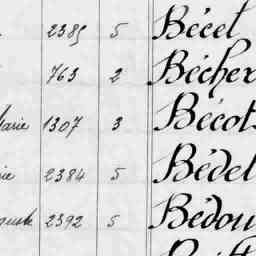 2385 5 Bécel
763 2 Bécher
Marie 1307 3 Bécot
rie 2384 5 Bédel
2392 5 Bédou